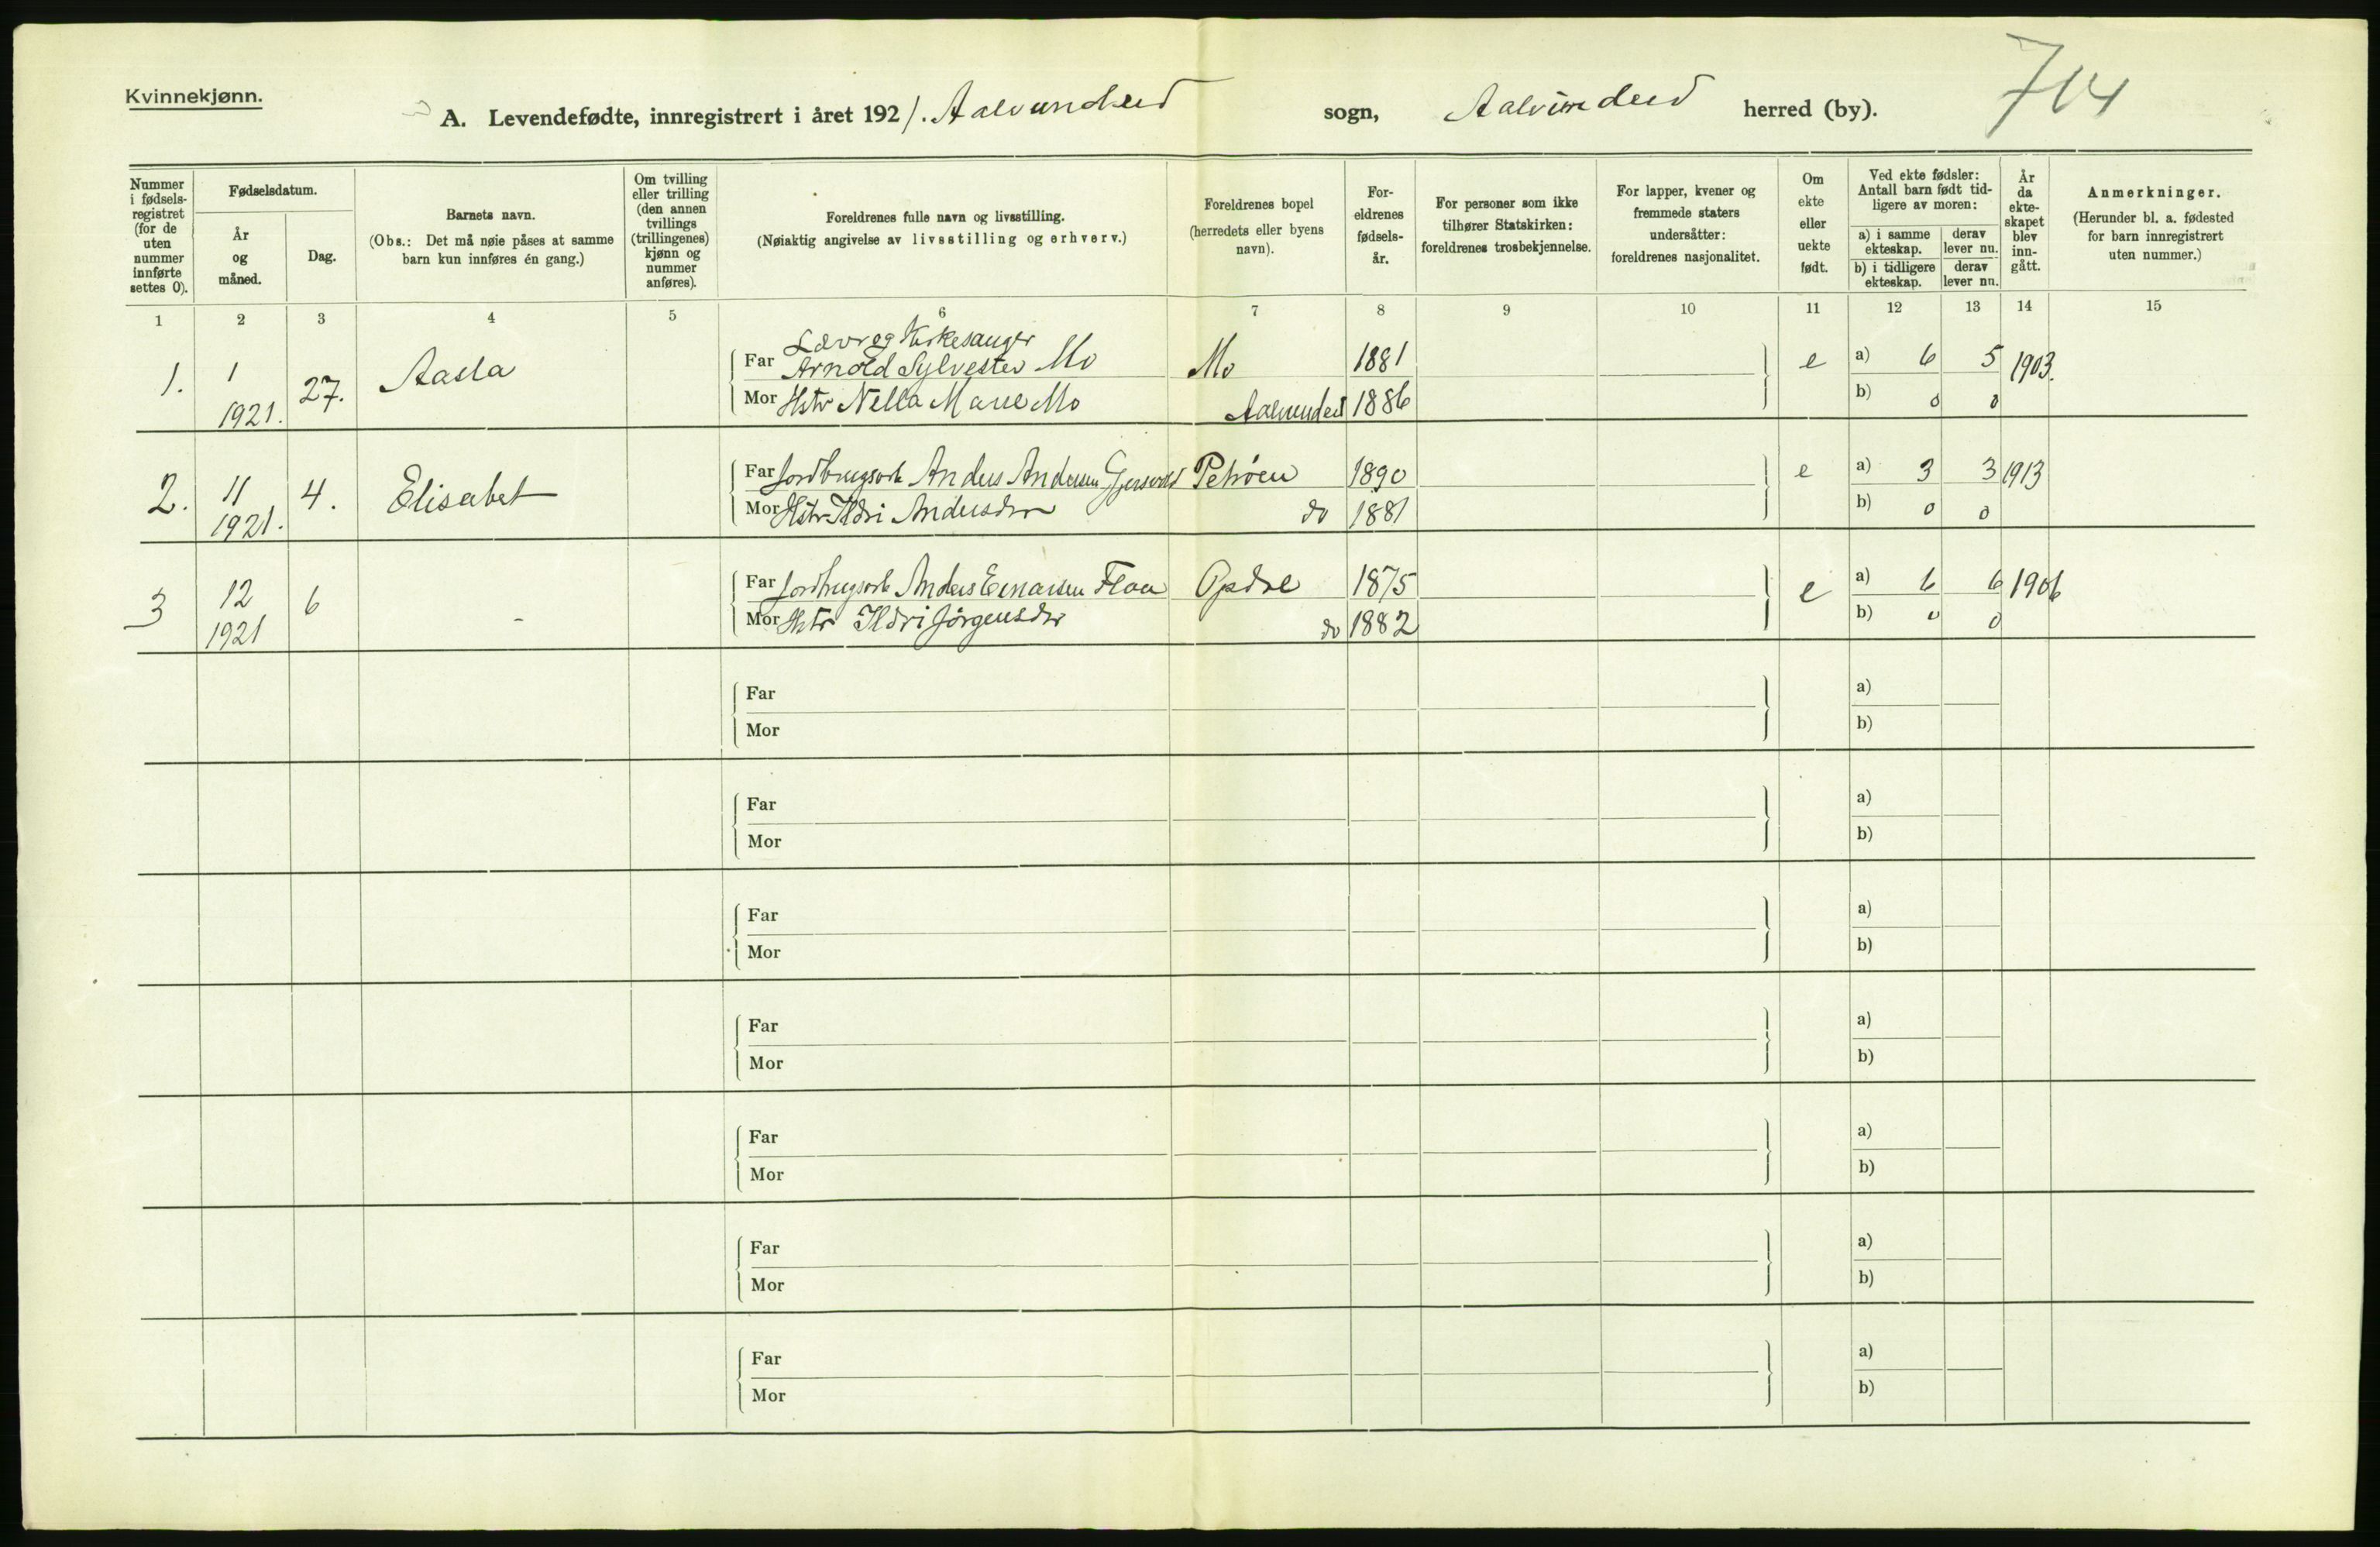 Kvinnekjønn.
714
A. Levendefødte, innregistrert i året 1921. Aalvundeid sogn, Aalvundeid herred (by).
Nummer i fødselsregistret (for de uten nummer innførte settes 0).
Fødselsdatum.
År og måned.
Dag.
Barnets navn.
(Obs.: Det må nøie påses at samme barn kun innføres én gang.)
Om tvilling eller trilling (den annen tvillings (trillingenes) kjønn og nummer anføres).
Foreldrenes fulle navn og livsstilling.
(Nøiaktig angivelse av livsstilling og erhverv.)
Foreldrenes bopel
(herredets eller byens navn).
Foreldrenes fødselsår.
For personer som ikke tilhører Statskirken: foreldrenes trosbekjennelse.
For lapper, kvener og fremmede staters undersåtter: foreldrenes nasjonalitet.
Om ekte eller uekte født.
Ved ekte fødsler: Antall barn født tidligere av moren:
a) i samme ekteskap.
derav lever nu.
b) i tidligere ekteskap.
derav lever nu.
År da ekteskapet blev inngått.
Anmerkninger.
(Herunder bl. a. fødested for barn innregistrert uten nummer.)
1 2 3 4 5 6 7 8 9 10 11 12 13 14 15
Lærer og Kirkesanger
1. 1 1921. 27. Aasta Far Arnold Sylvester Mo Mo 1881 e a) 6 5 1903.
Mor Hstr Nella Marie Mo Aalvundeid 1886 b) 0 0
2. 11 1921. 4. Elisabet Far Jordbrugsarb Anders Andersen Petrøen 1890 e a) 3 3 1913
Mor Hstr Ildri Andersdtr do 1881 b) 0 0
3 12 1921 6 - Far Jordbrugsarb Anders Einarsen Flaa Opdal 1875 e a) 6 6 1906
Mor Hstr Ildri Jørgensdtr do 1882 b) 0 0
Far a)
Mor b)
Far a)
Mor b)
Far a)
Mor b)
Far a)
Mor b)
Far a)
Mor b)
Far a)
Mor b)
Far a)
Mor b)